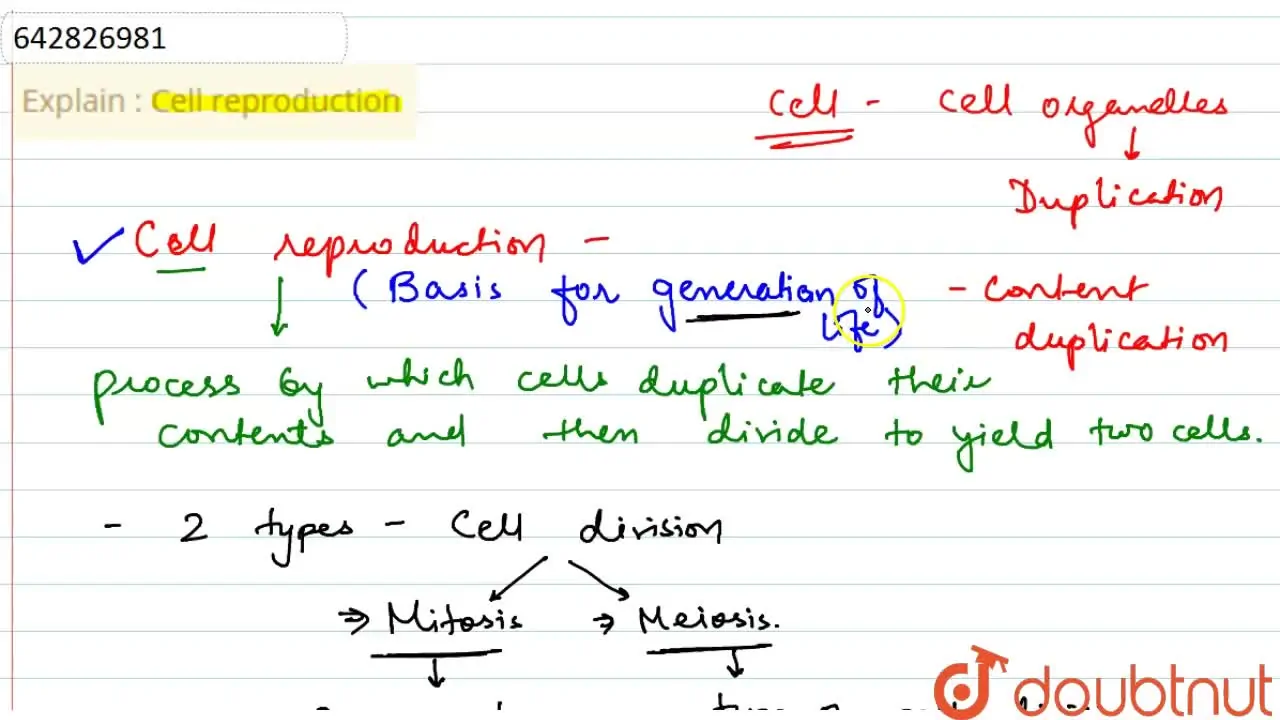 642826981
Explain : Cell reproduction
Cell - Cell organelles
Duplication
Cell reproduction -
(Basis for generation of
life)
- Content
duplication
process by which cells duplicate their
contents and then divide to yield two cells.
- 2 types - Cell division
⇒ Mitosis → Meiosis.
doubtnut